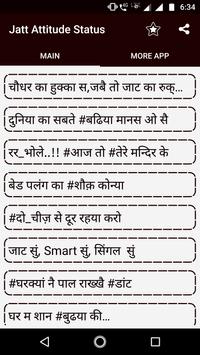 6:34
Jatt Attitude Status
MAIN MORE APP
चौधर का हुक्का स,जबै तो जाट का रुक्...
दुनिया का सबते #बढिया मानस ओ सै
रर_भोले..!! #आज तो #तेरे मन्दिर के
बेड पलंग का #शौक़ कोन्या
#दो_चीज़ से दूर रहया करो
जाट सुं, Smart सुं, सिंगल सुं
#घरक्यां नै पाल राख्खै #डांट
घर म शान #बुढया की...